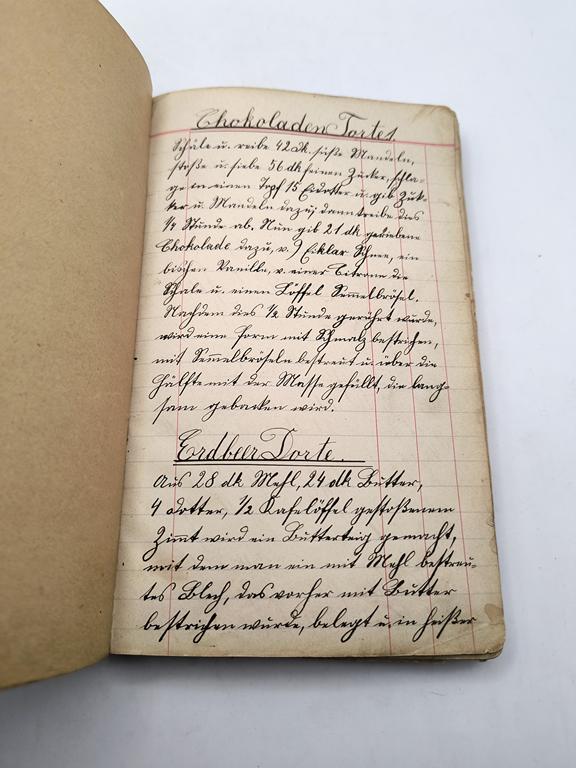 Chokoladen Torte
Schäle u. reibe 42 dk süße Mandeln,
stoße u. siebe 56 dk feinen Zucker, schla-
ge in einen Topf 15 Eidotter u. gib Zuk-
ker u. Mandeln dazu; dann treibe dies
½ Stunde ab. Nun gib 21 dk geriebene
Chokolade dazu, v. 9 Eiklar Schnee, ein
bischen Vanille, v. einer Citrone die
Schale u. einen Löffel Semmelbrösel.
Nachdem dies ½ Stunde gerührt wurde,
wird eine Form mit Schmalz bestrichen,
mit Semmelbröseln bestreut u. über die
Hälfte mit der Masse gefüllt, die lang-
sam gebacken wird.
Erdbeer Torte.
Aus 28 dk Mehl, 24 dk Butter,
4 Dotter, ½ Kafelöffel gestoßenem
Zimmt wird ein Butterteig gemacht,
mit dem man ein mit Mehl bestreu-
tes Blech, das vorher mit Butter
bestrichen wurde, belegt u. in heißer